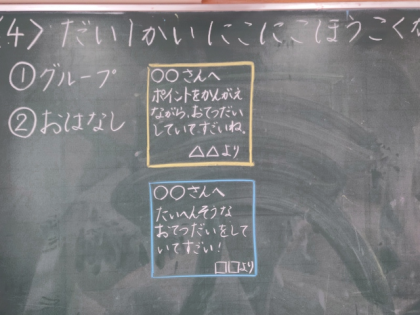 〈4〉だい1かいにこにこほうこくか
①グループ
②おはなし
○○さんへ
ポイントをかんがえ
ながら、おてつだい
していてすごいね。
△△より
○○さんへ
たいへんそうな
おてつだいをして
いてすごい!
□□より